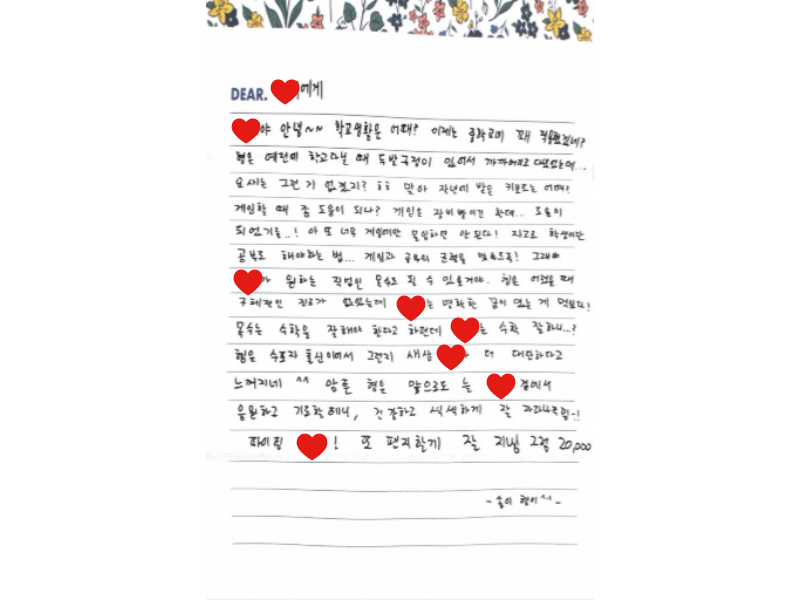 DEAR. 에게
야 안녕~~ 학교생활은 어때? 이제는 중학교에 꽤 적응했겠네?
형은 예전에 학교다닐 때 두발규정이 있어서 까까머리로 다녔었는데...
요새는 그런 거 없겠지? ㅎㅎ 맞아 작년에 받은 키보드는 어때?
게임할 때 좀 도움이 되나? 게임은 장비빨이긴 한데... 도움이
되었기를..! 아 또 너무 게임에만 몰입하면 안된다! 자고로 학생이란
공부도 해야하는 법... 게임과 공부의 균형을 맞추도록! 그래야
가 원하는 직업인 목수도 될 수 있을거야. 형은 어렸을 때
구체적인 진로가 없었는데 는 명확한 꿈이 있는 게 멋있다!
목수는 수학을 잘해야 한다고 하던데 는 수학 잘하니..?
형은 수포자 출신이여서 그런지 새삼 가 더 대단하다고
느껴지네 ^^ 암튼 형은 앞으로도 늘 곁에서
응원하고 기도할테니, 건강하고 씩씩하게 잘 자라나주렴~!
파이팅 ! 또 편지할게 잘 지내 그럼 20,000
- 형이 ^^ -